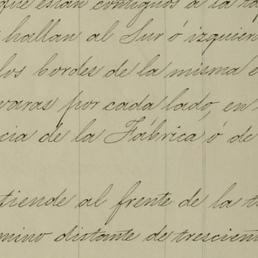 que están contiguos a la
hallan al Sur ó izquier
los bordes de la misma
varas por cada lado, en
cia de la Fábrica ó de
tiende al frente de la
mino distante de trescien